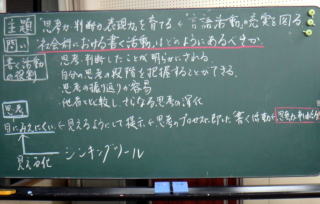 主題 「思考力・判断力・表現力を育てる」 ← 「言語活動」の充実を図る
問い 社会科における書く活動はどのようにあるべきか
書く活動の役割
・思考・判断したことが明らかにされる
・自分の思考の段階を把握することができる
・思考の振り返りの容易
・他者と比較し、さらなる思考の深化
思考
目にみえにくい ← 見えるようにして提示 ← 思考のプロセスに即した書く活動
見える化 シンキングツール